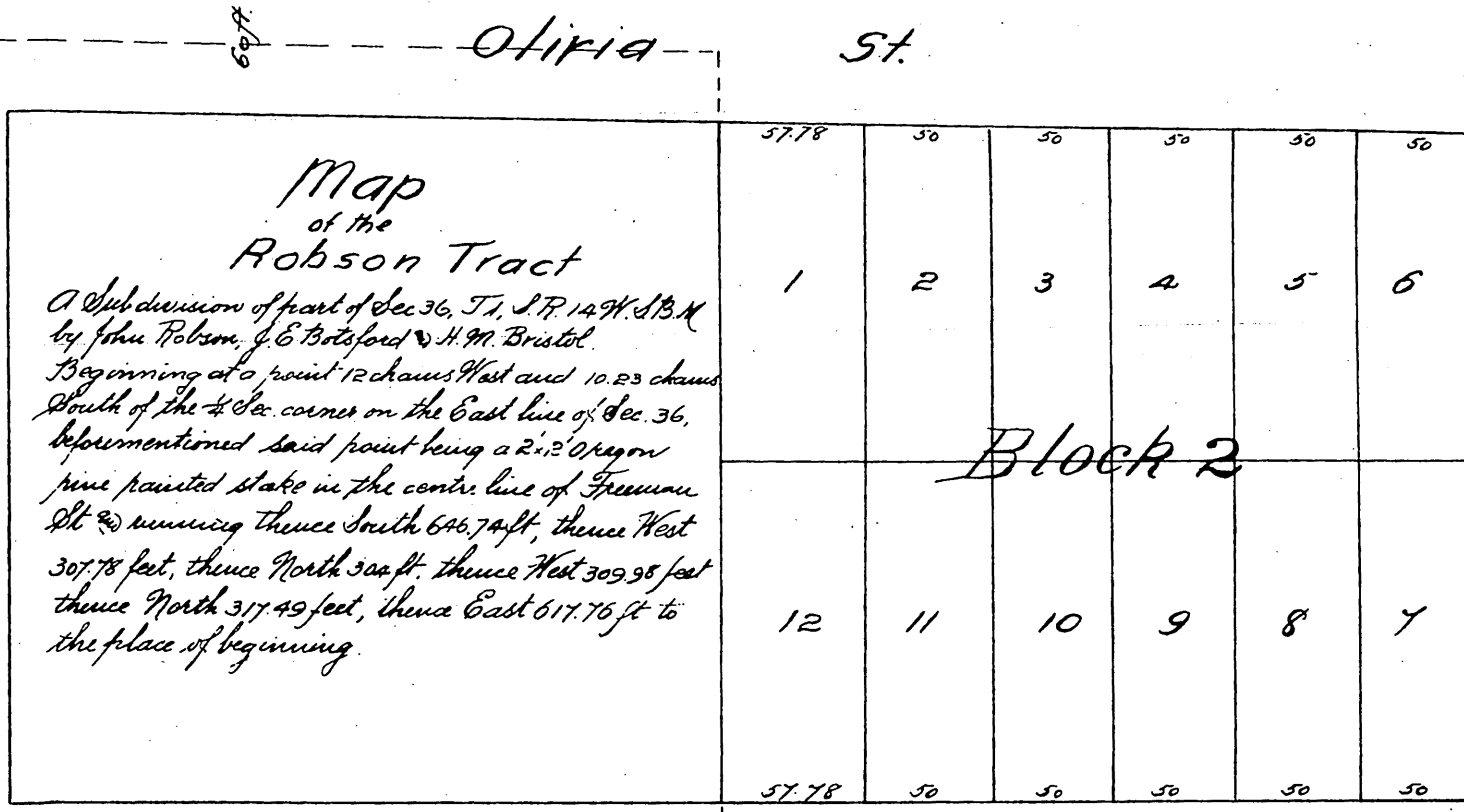 60 ft.
Oliria St.
Map
of the
Robson Tract
A Subdivision of part of Sec 36, T 1, S. R. 14 W. S. B. M
by John Robson, J. E Botsford & H. M. Bristol.
Beginning at a point 12 chains West and 10.23 chains
South of the 1/4 Sec. corner on the East line of Sec. 36,
beforementioned said point being a 2'x2' Oregon
pine painted stake in the centre line of Freeman
St and running thence South 646.74 ft, thence West
307.78 feet, thence North 304 ft. thence West 309.98 feet
thence North 317.49 feet, thence East 617.76 ft to
the place of beginning.
57.78 50 50 50 50 50
1 2 3 4 5 6
Block 2
12 11 10 9 8 7
57.78 50 50 50 50 50